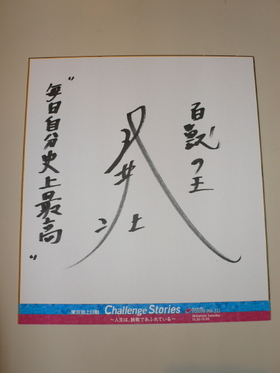 百獣の王
武井
壮
"毎日自分史上最高"
東京海上日動 Challenge Stories
～人生は、挑戦であふれている～